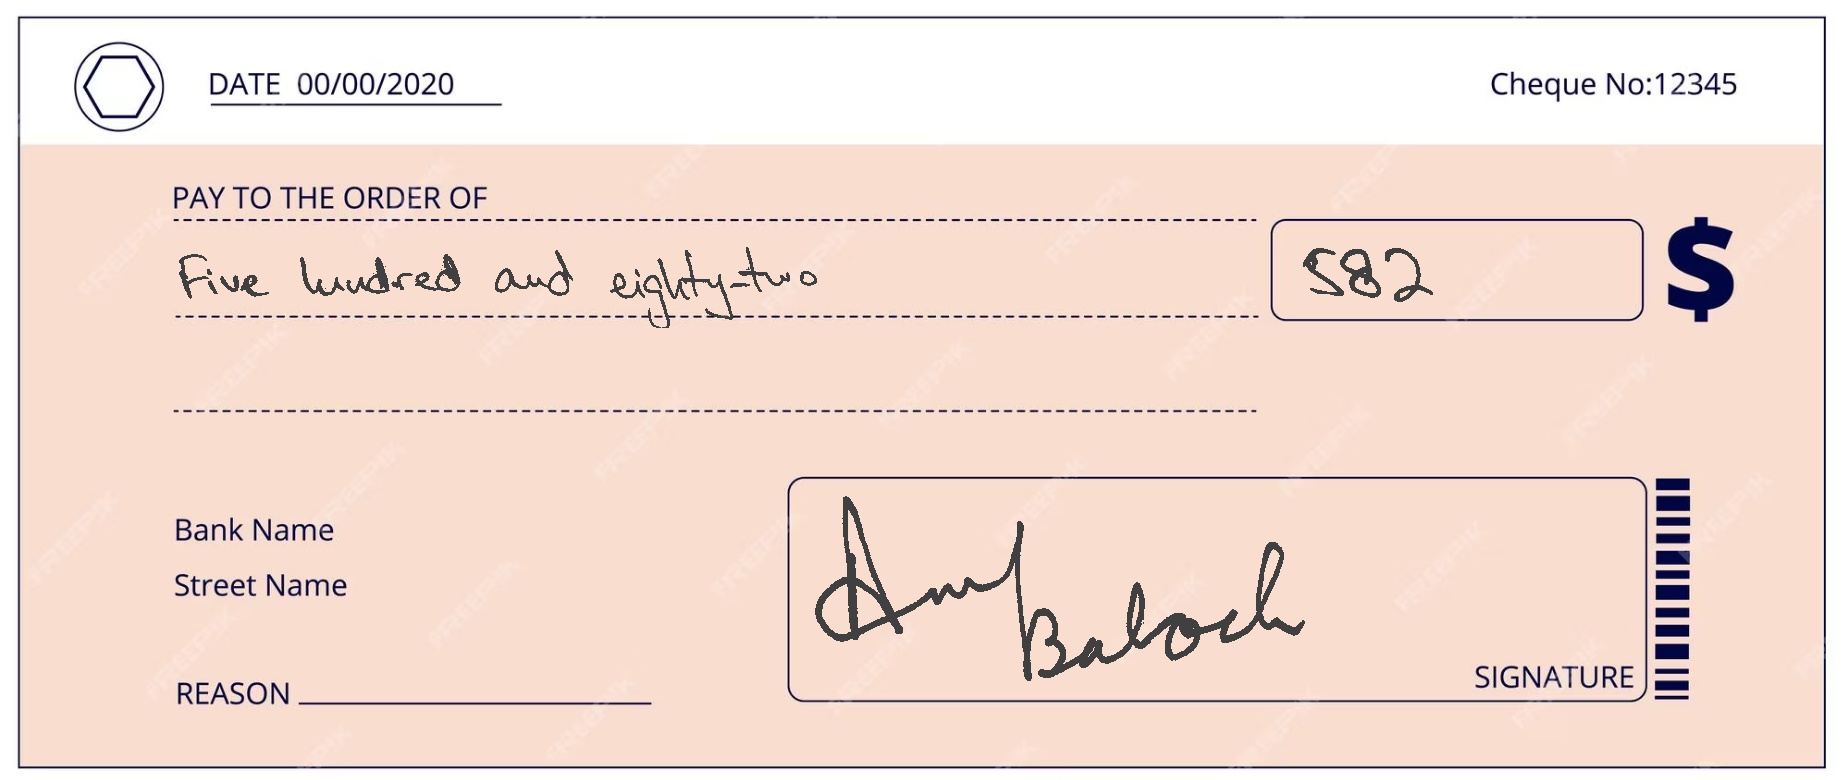 DATE 00/00/2020
Cheque No:12345
PAY TO THE ORDER OF
Five hundred and eighty-two
582 $
Bank Name
Street Name
Baloch
SIGNATURE
REASON